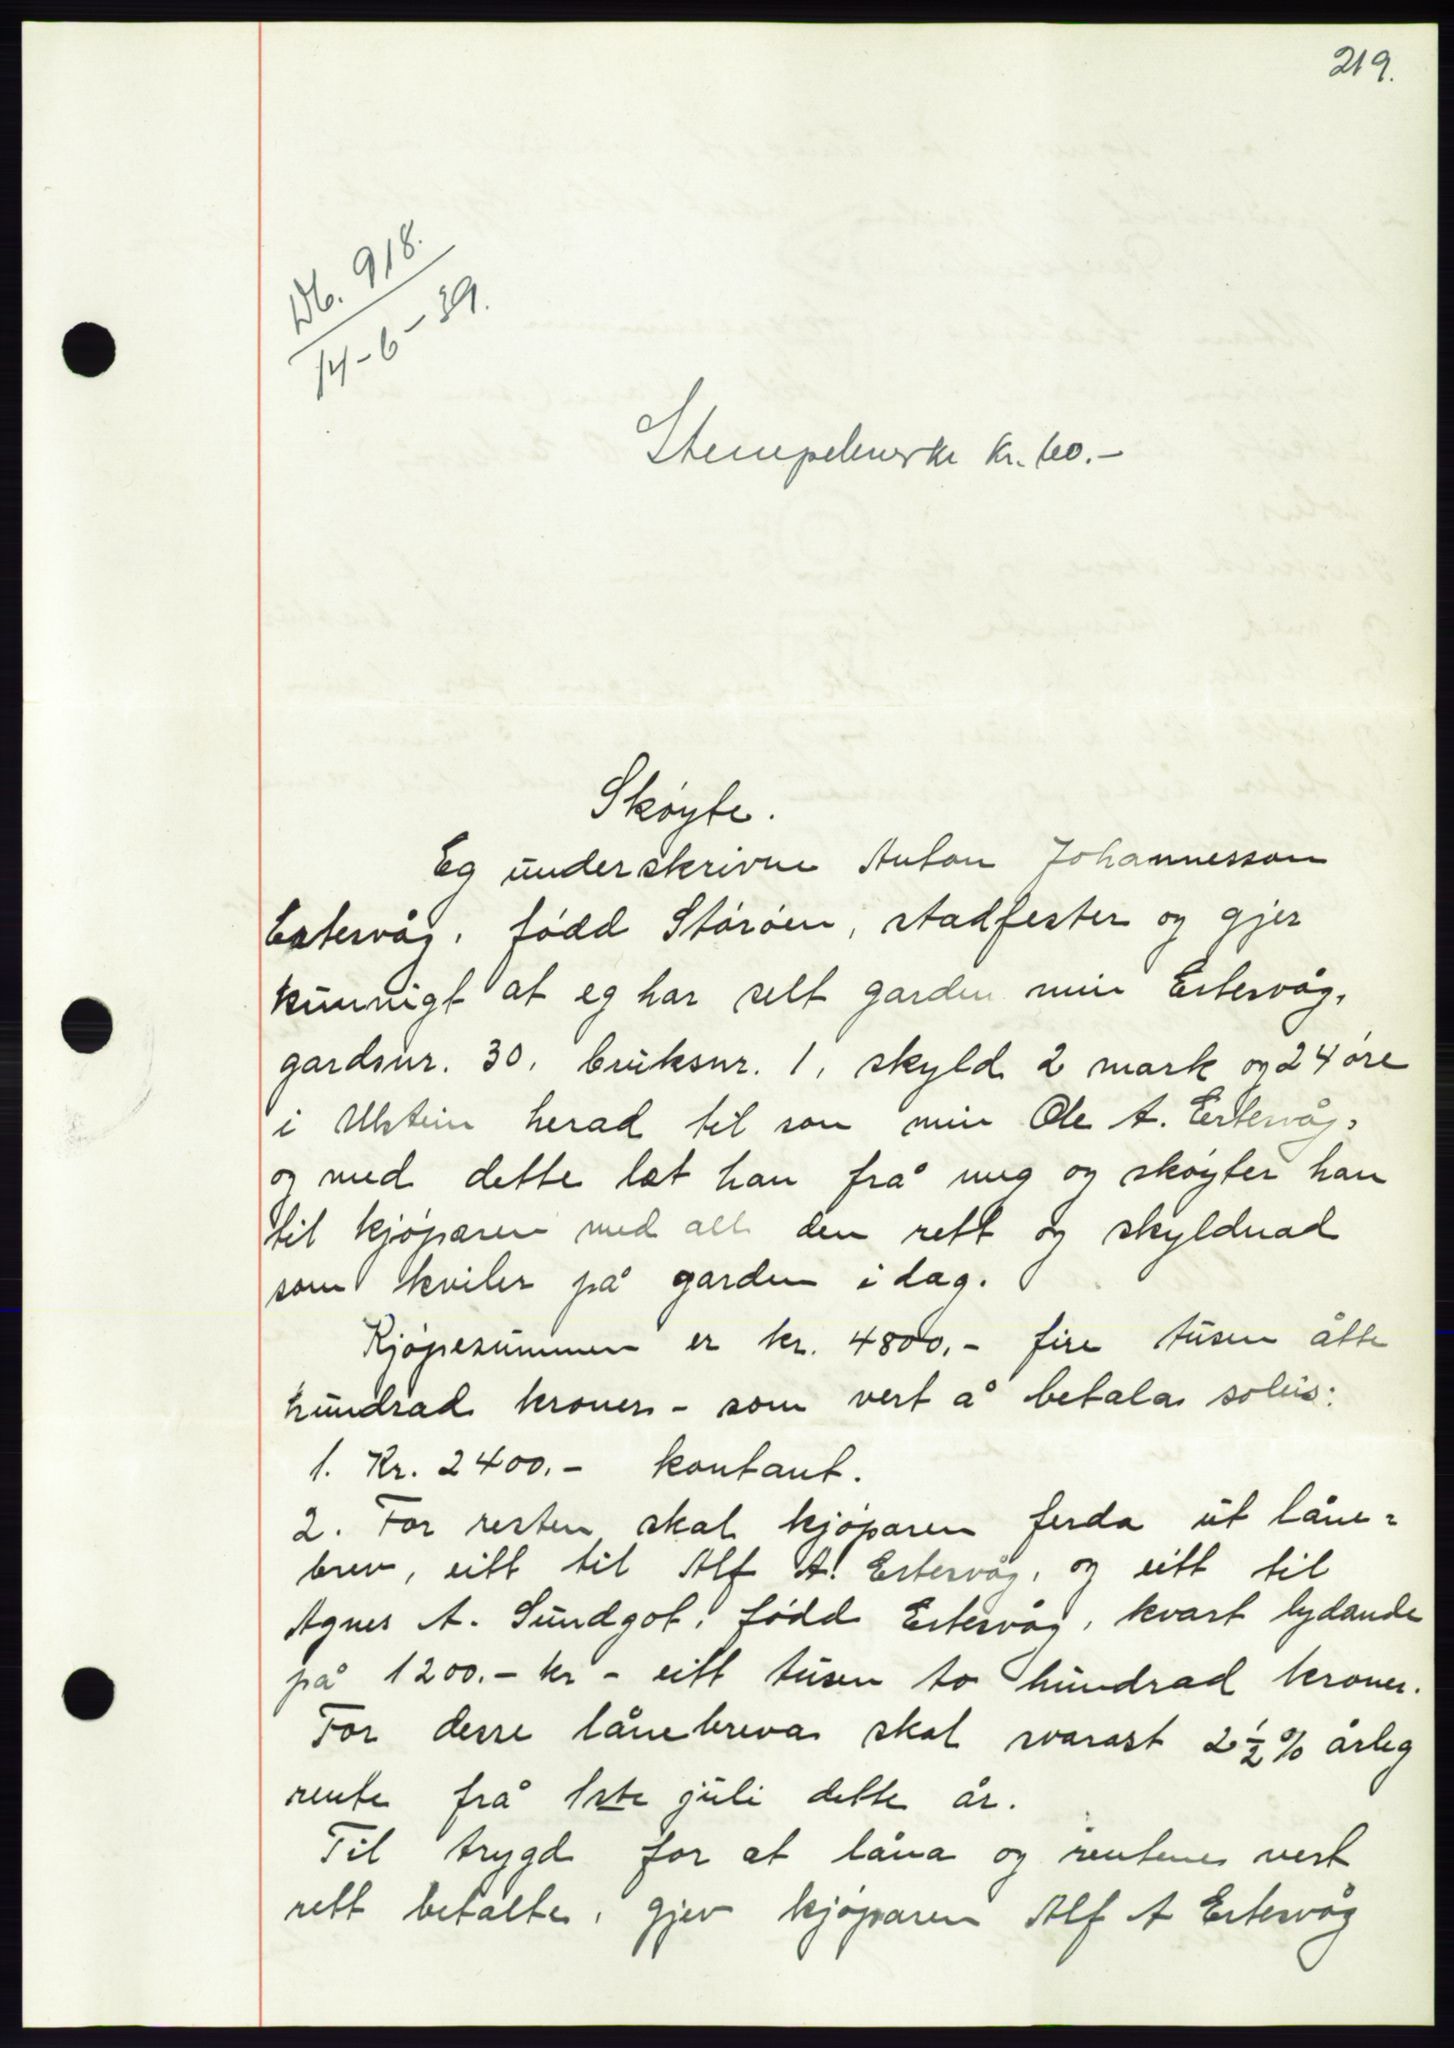 219.
Db. 918.
14-6-39.
Stempelmerke kr. 60.-
Skøyte.
Eg underskrivne Anton Johannesson
Estervåg, fødd Størøen, stadfester og gjer
kunnigt at eg har selt garden min Estervåg,
gardsnr. 30, bruksnr. 1, skyld 2 mark og 24 øre
i Ulstein herad til son min Ole A. Estervåg,
og med dette læt han frå meg og skøyter han
til kjøparen med all den rett og skyldnad
som kviler på garden idag.
Kjøpesummen er kr. 4800.- fire tusen åtte
hundrad kroner - som vert å betala solus:
1. Kr. 2400.- kontant.
2. For resten skal kjøparen ferda ut låne=
brev, eitt til Alf A. Estervåg, og eitt til
Agnes A. Sundgot, fødd Estervåg, kvart lydande
på 1200.- kr - eitt tusen to hundrad kroner.
For desse lånebreva skal svarast 2½% årleg
rente frå 1ste juli dette år.
Til trygd for at låna og rentene vert
rett betalte, gjev kjøparen Alf A Estervåg